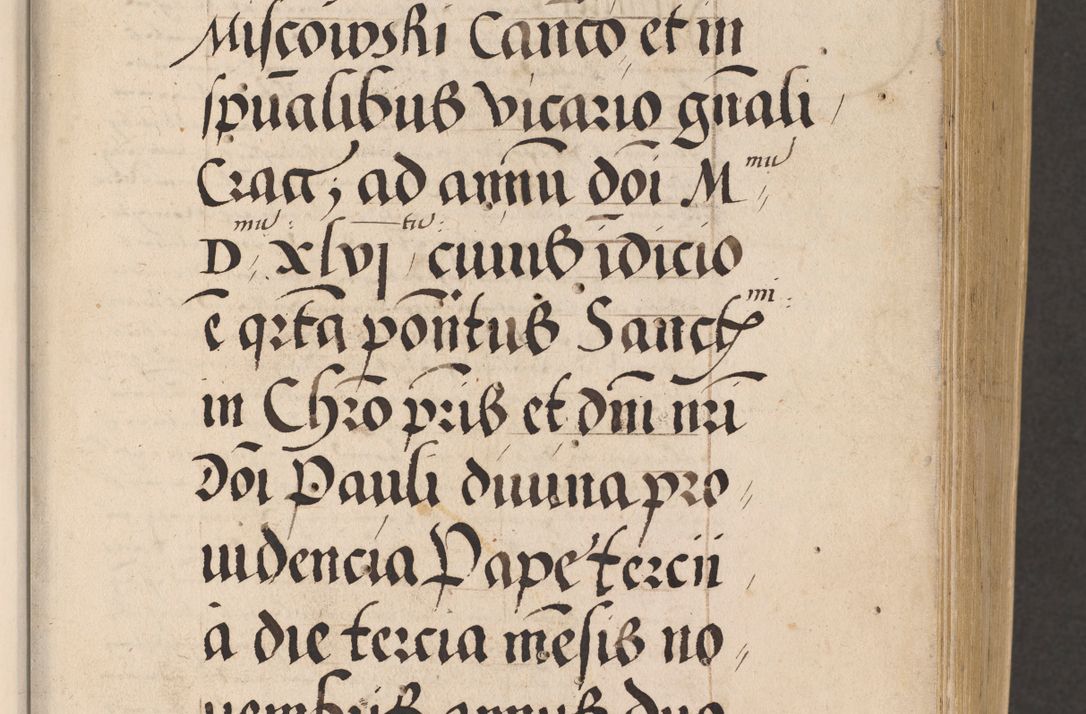 Miscowski Canco᷑ et in
spūalibus vicario gn̄ali
Cracc; ad annū dōi M mu
D mu: xlvj tu: cuius īdicio
ē qrta pon̄tus Sanct mi:
in Chrō pris et dn̄i nr̄i
Dōi Pauli diuina pro
uidencia Pape tercii
a die tercia mēsis no
uembris annus duo